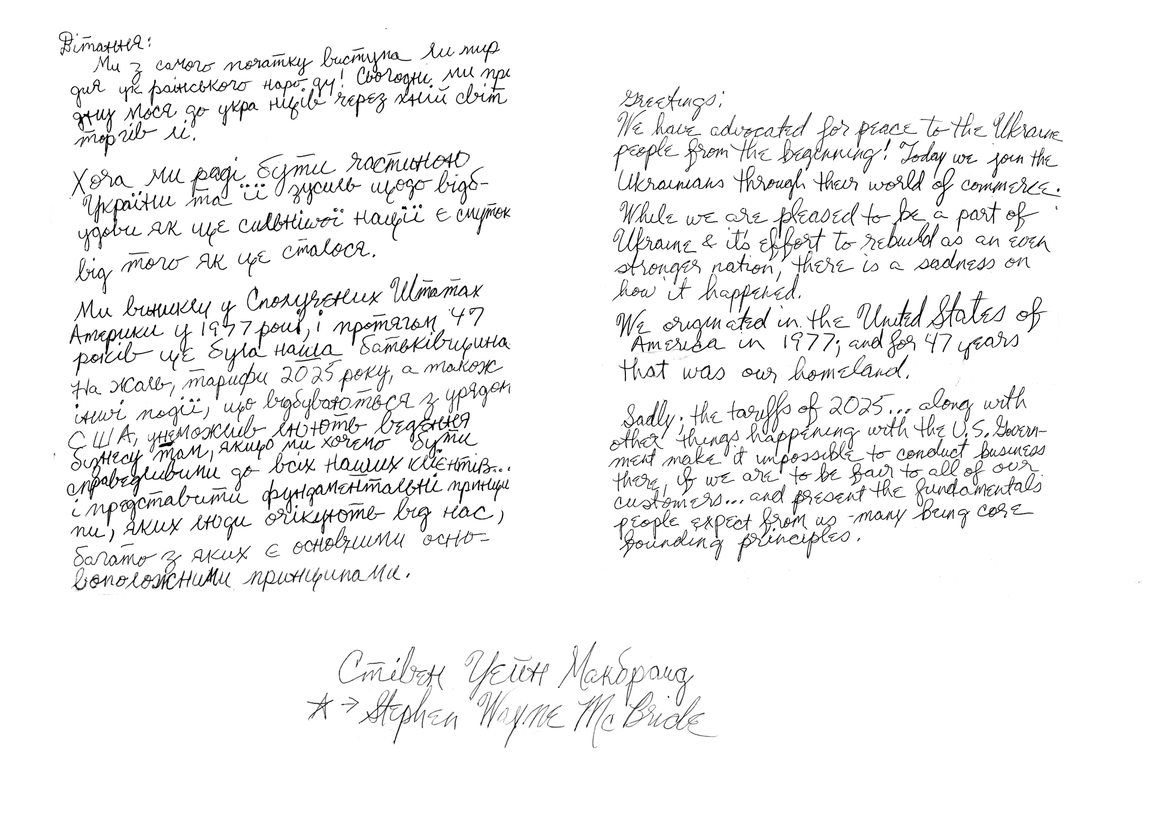 Вітання:
Ми з самого початку виступа ли мир
для ук раїнського наро ду! Сьогодні ми при
дну мося до укра нців через їхній світ
торгів лі.
Хоча ми раді бути частиною
України та її зусиль щодо відб-
удови як ще сильнішої нації є смуток
від того як це сталося.
Ми виникли у Сполучених Штатах
Америки у 1977 році, і протягом 47
років це була наша батьківщина
На жаль, тарифи 2025 року, а також
інші події, що відбуваються з урядом
США, унеможлив люють ведення
бізнесу там, якщо ми хочемо бути
справедливими до всіх наших клієнтів...
і представити фундаментальні принци
пи, яких люди очікують від нас,
багато з яких є основними осно-
воположними принципами.
Greetings:
We have advocated for peace to the Ukraine
people from the beginning! Today we join the
Ukrainians through their world of commerce.
While we are pleased to be a part of
Ukraine & it's effort to rebuild as an even
stronger nation, there is a sadness on
how it happened.
We originated in the United States of
America in 1977; and for 47 years
that was our homeland.
Sadly; the tariffs of 2025... along with
other things happening with the U.S. Govern-
ment make it impossible to conduct business
there, if we are to be fair to all of our
customers... and present the fundamentals
people expect from us - many being core
founding principles.
Стівен Уейн Макбрайд
☆→ Stephen Wayne McBride